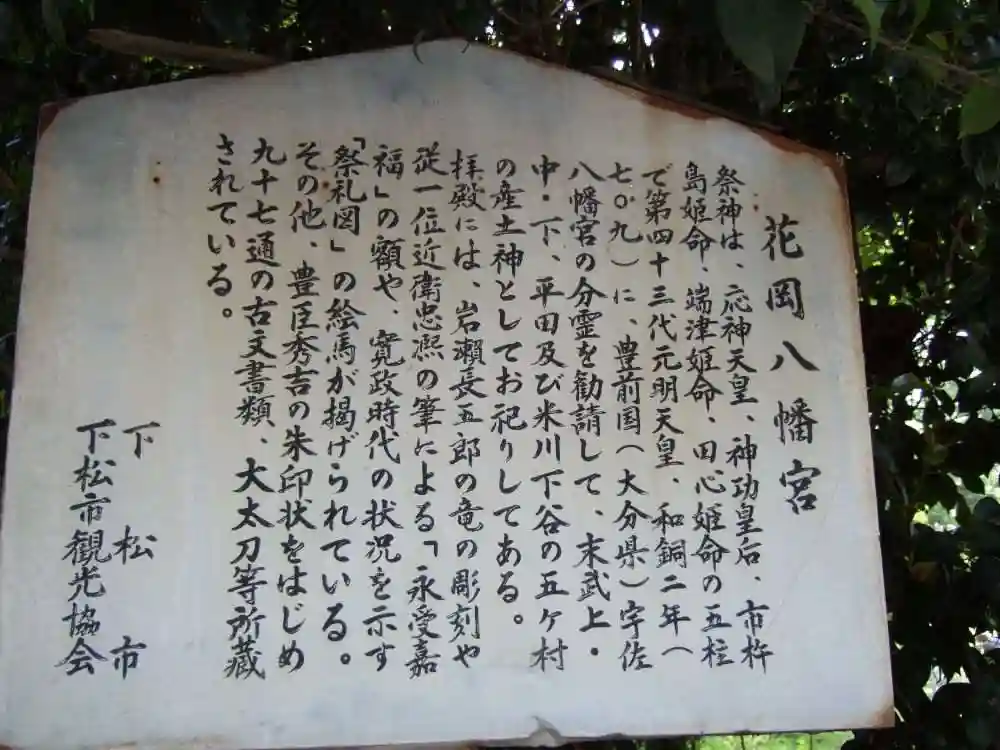 花岡八幡宮
祭神は、応神天皇、神功皇后、市杵
島姫命、端津姫命、田心姫命の五柱
で第四十三代元明天皇、和銅二年(
七〇九)に、豊前国(大分県)宇佐
八幡宮の分霊を勧請して、末武上・
中・下、平田及び米川下谷の五ケ村
の産土神としてお祀りしてある。
拝殿には、岩瀬長五郎の竜の彫刻や
従一位近衛忠凞の筆による「永受嘉
福」の額や、寛政時代の状況を示す
「祭礼図」の絵馬が掲げられている。
その他、豊臣秀吉の朱印状をはじめ
九十七通の古文書類、大太刀等所蔵
されている。
下松市
下松市観光協会